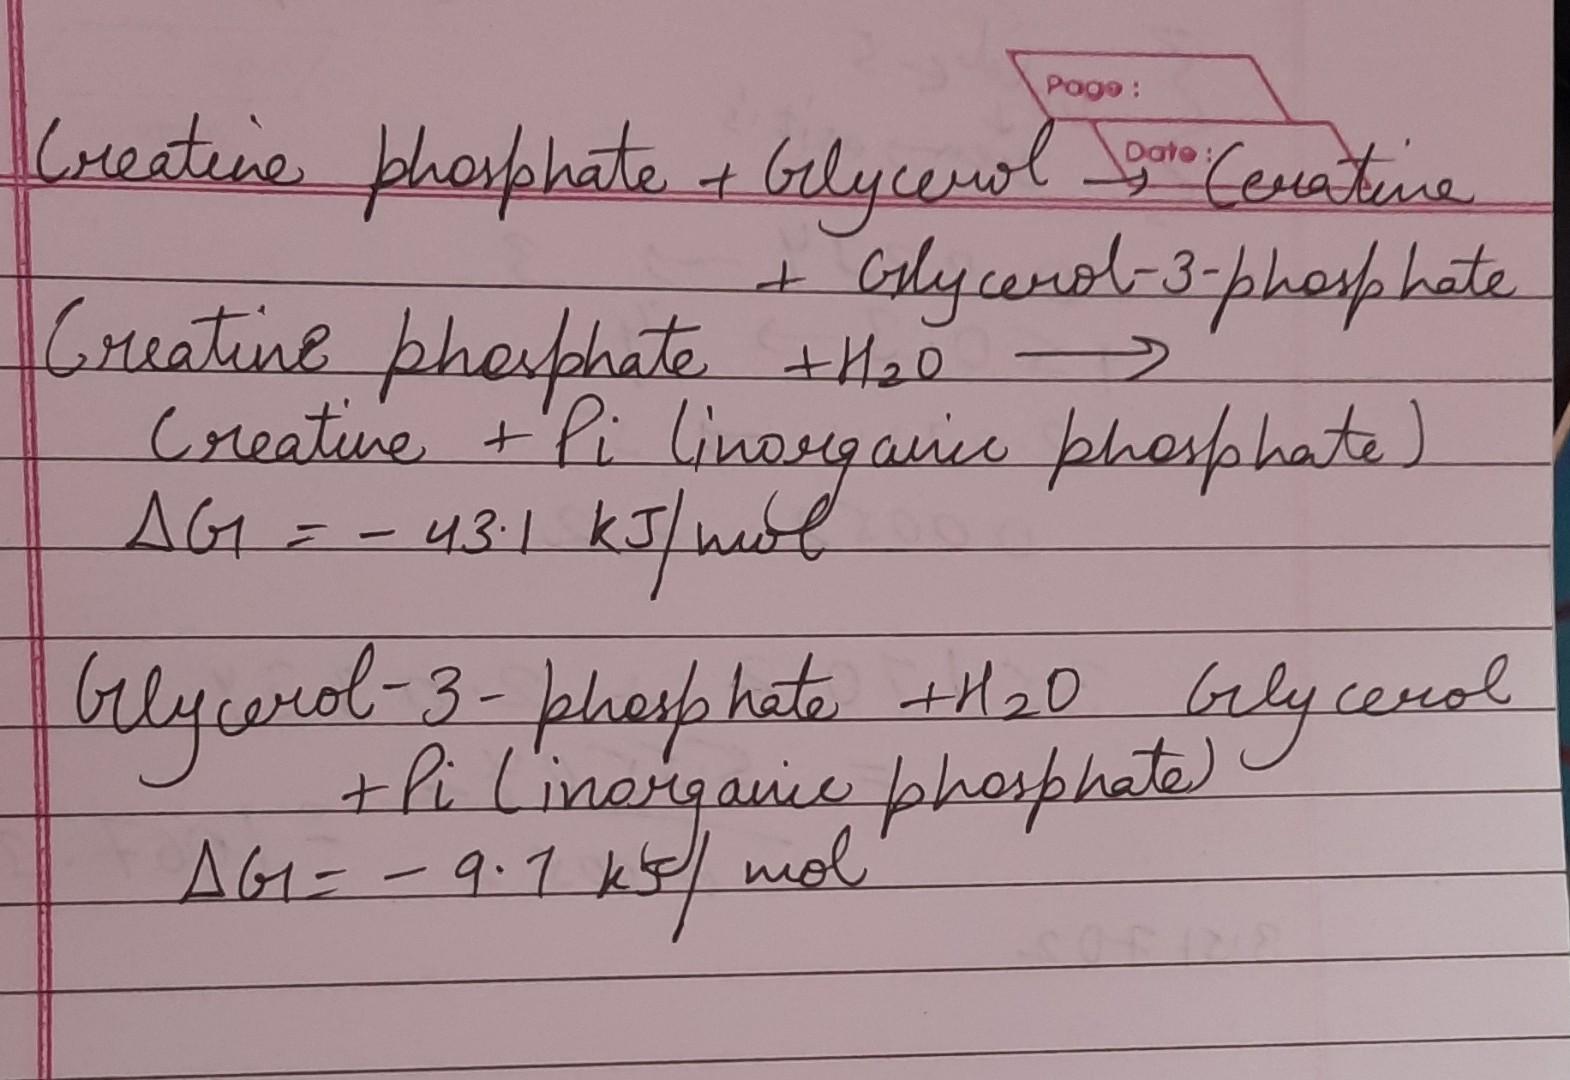 Page:
Date:
Creatine phosphate + Glycerol → Ceratine
+ Glycerol-3-phosphate
Creatine phosphate + H2O →
Creatine + Pi (inorganic phosphate)
ΔG = - 43.1 kJ/mol
Glycerol-3-phosphate + H2O Glycerol
+ Pi (inorganic phosphate)
ΔG = - 9.7 kJ/mol